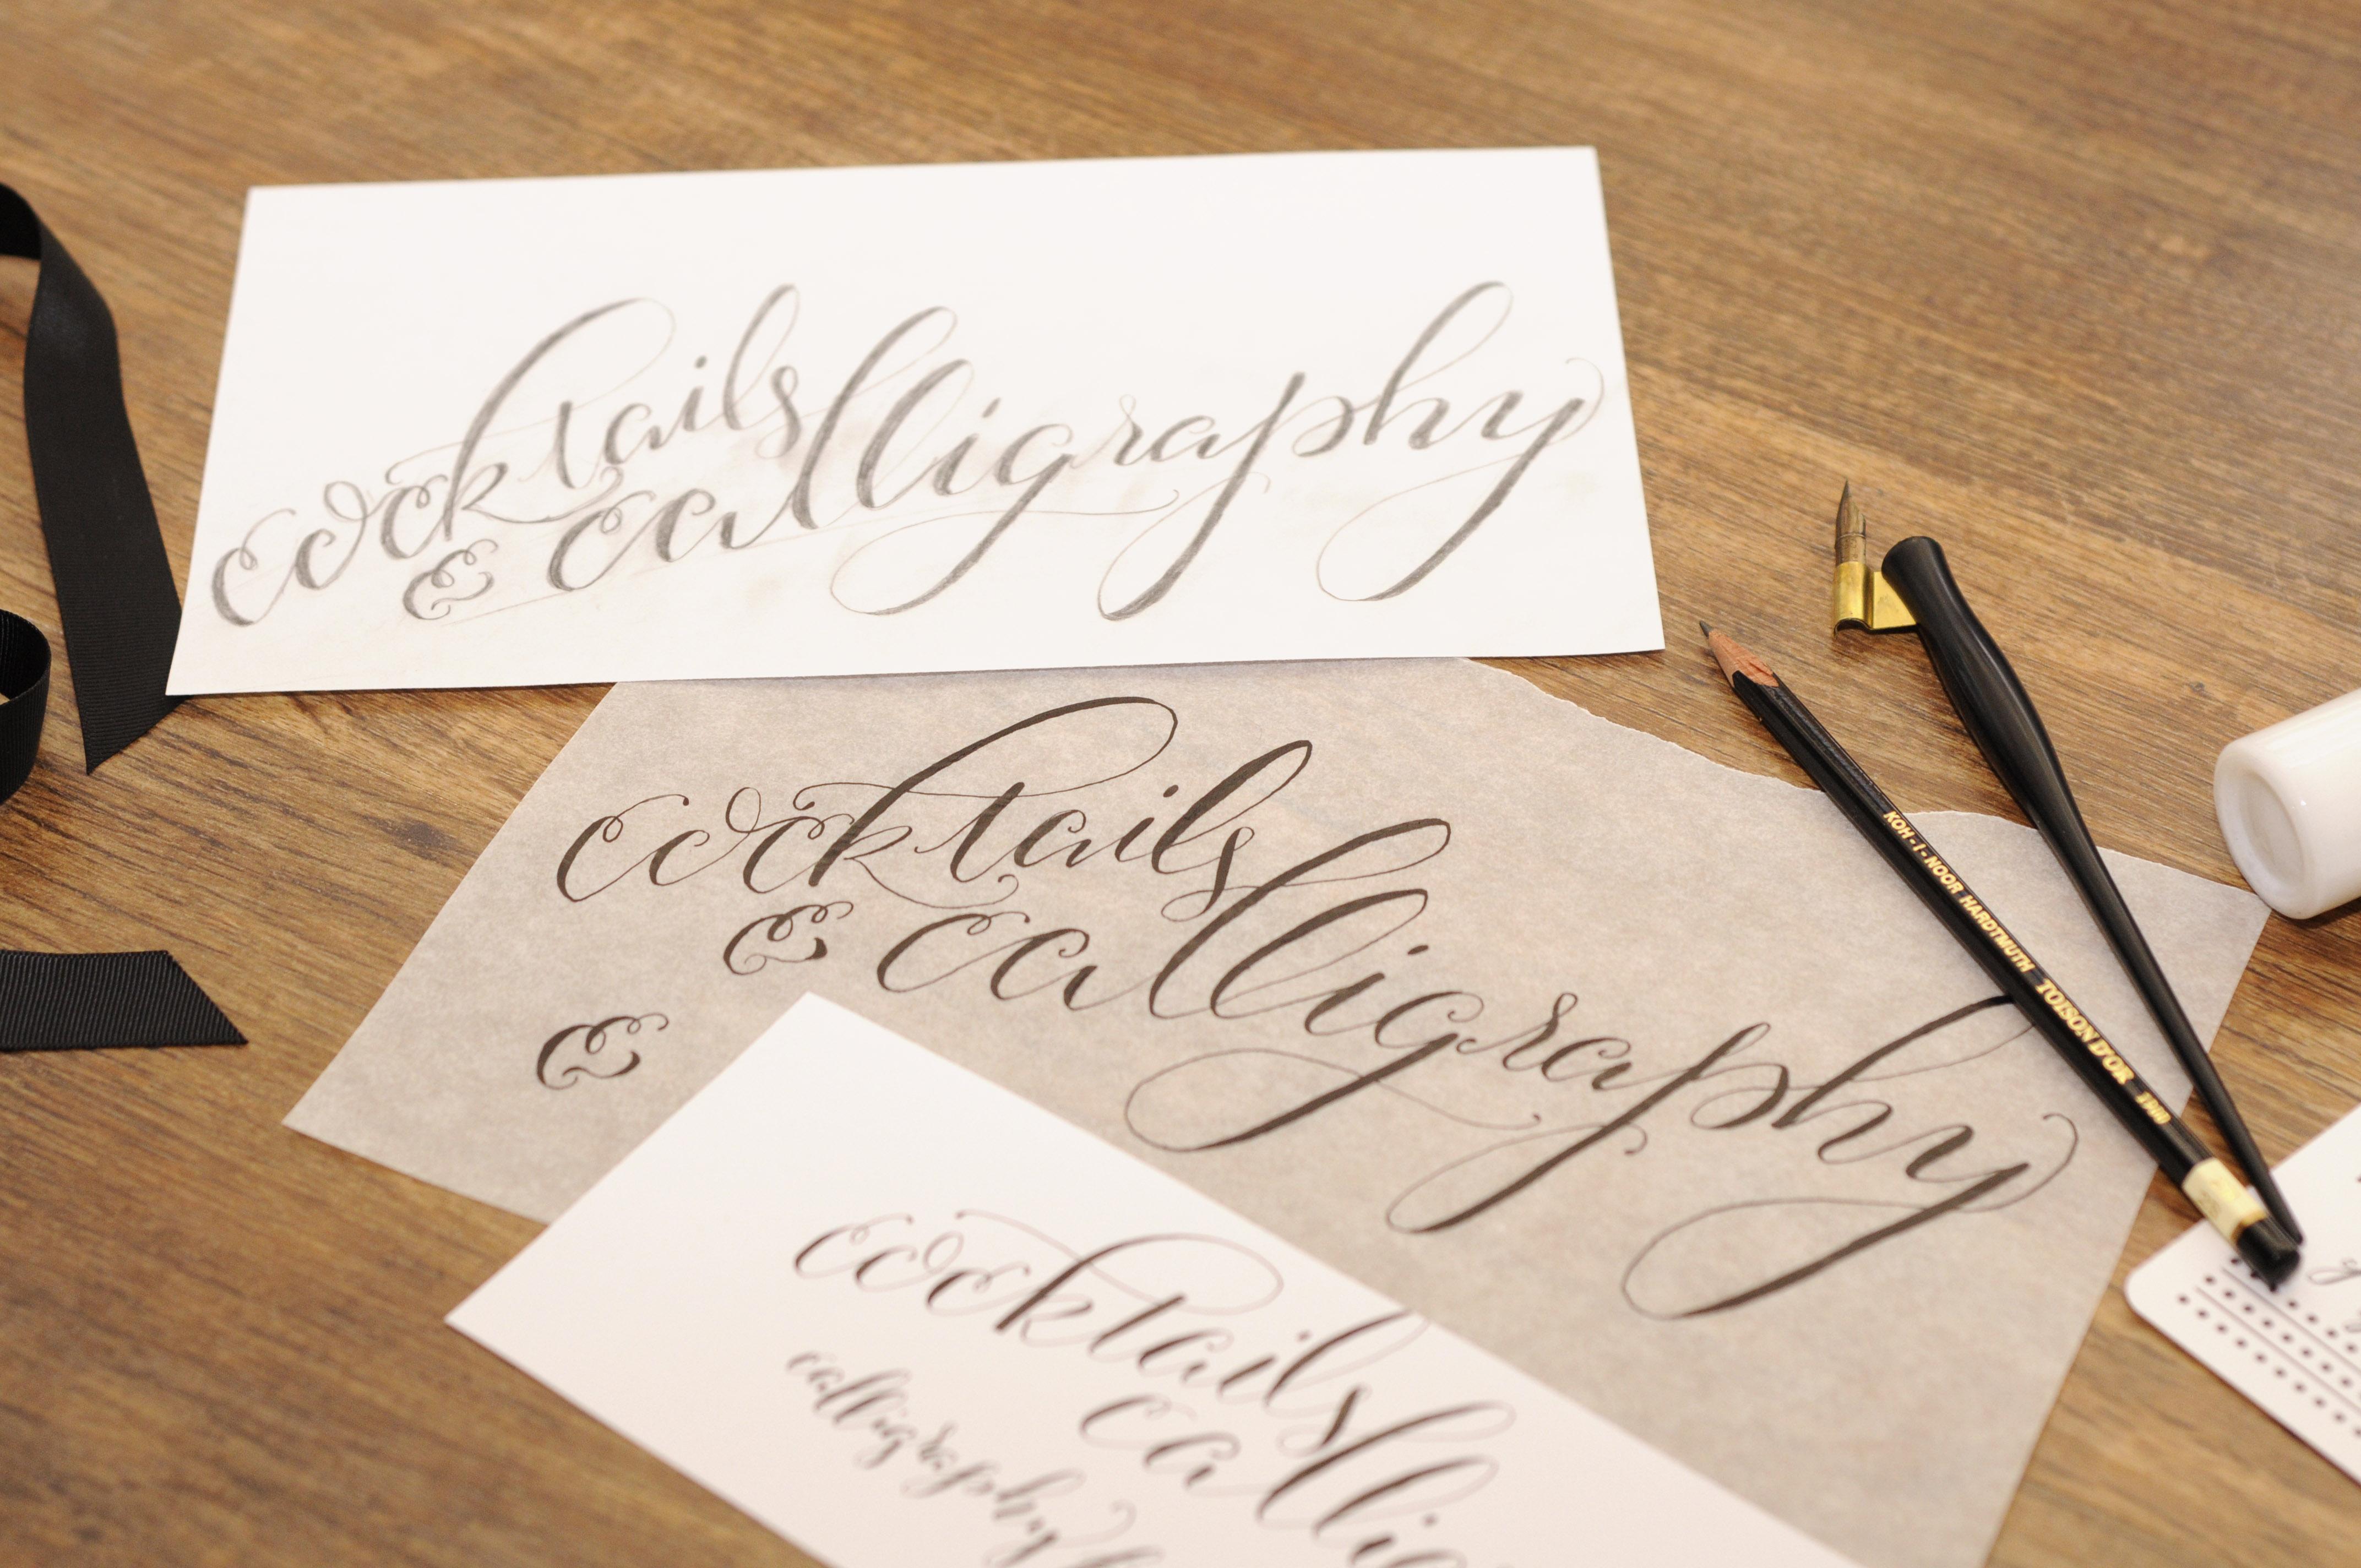 cocktails
& calligraphy
cocktails
& calligraphy
&
cocktails
calligraphy
KOH-I-NOOR HARDTMUTH TOISON D'OR 1900